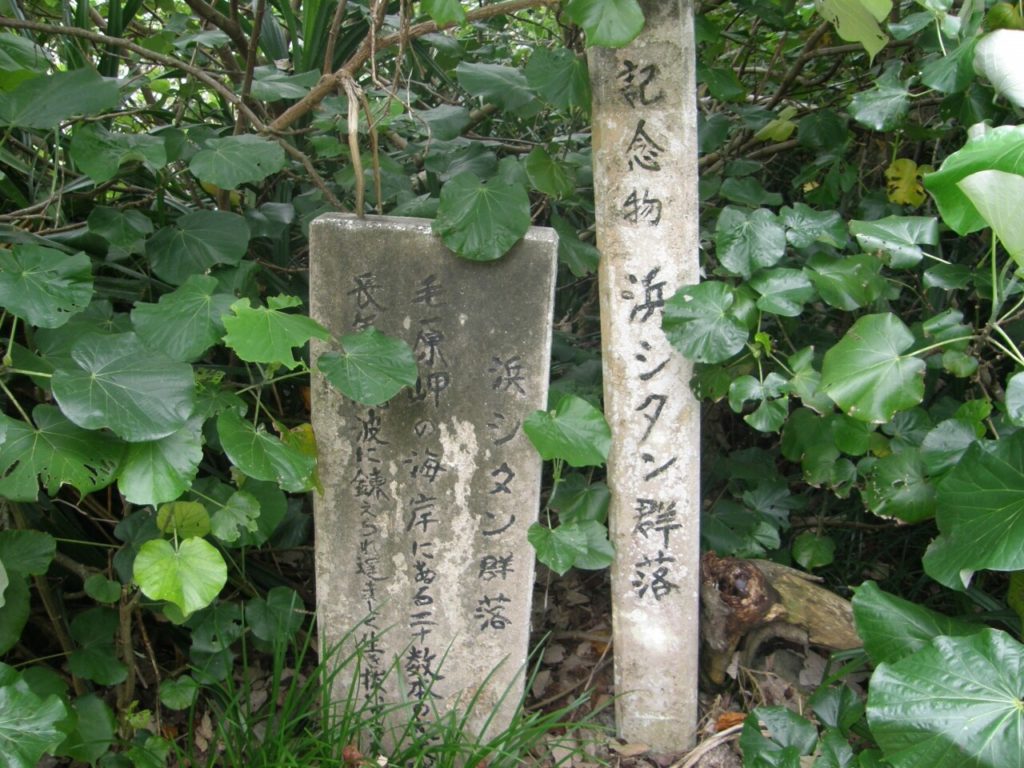 記念物 浜シタン群落
浜シタン群落
毛原岬の海岸にある二十数本の
長年 波に錬えられ逞ましく生き